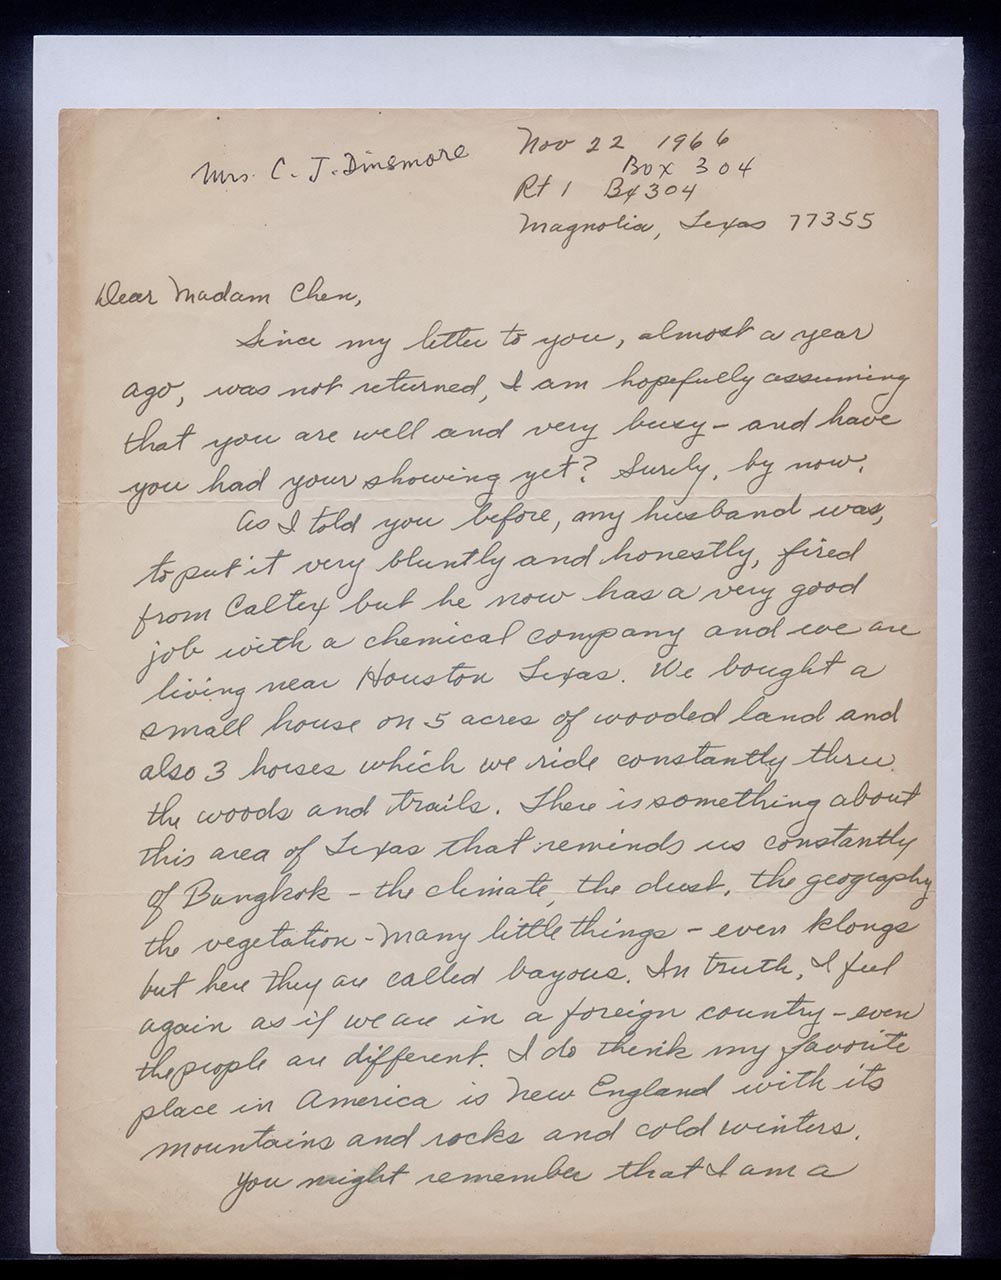 Mrs. C. J. Dinsmore
Nov 22 1966
Box 304
Rt 1 Bx 304
Magnolia, Texas 77355
Dear Madam Chen,
Since my letter to you, almost a year
ago, was not returned, I am hopefully assuming
that you are well and very busy - and have
you had your showing yet? Surely, by now.
As I told you before, my husband was,
to put it very bluntly and honestly, fired
from Caltex but he now has a very good
job with a chemical company and we are
living near Houston Texas. We bought a
small house on 5 acres of wooded land and
also 3 horses which we ride constantly thru
the woods and trails. There is something about
this area of Texas that reminds us constantly
of Bangkok - the climate, the dust, the geography
the vegetation - many little things - even klongs
but here they are called bayous. In truth, I feel
again as if we are in a foreign country - even
the people are different. I do think my favorite
place in America is New England with its
mountains and rocks and cold winters.
You might remember that I am a